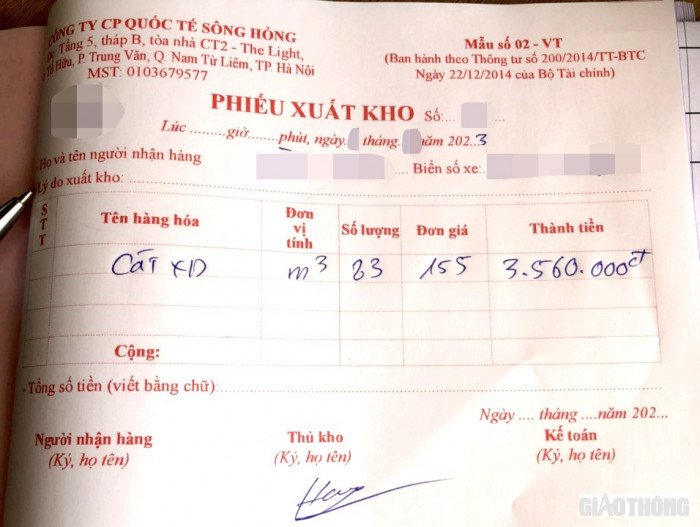 CÔNG TY CP QUỐC TẾ SÔNG HỒNG
Đc. Tầng 5, tháp B, tòa nhà CT2 - The Light,
Tố Hữu, P. Trung Văn, Q. Nam Từ Liêm, TP. Hà Nội
MST: 0103679577
Mẫu số 02 - VT
(Ban hành theo Thông tư số 200/2014/TT-BTC
Ngày 22/12/2014 của Bộ Tài chính)
PHIẾU XUẤT KHO Số:
Lúc .........giờ.........phút, ngày, tháng năm 2023
Họ và tên người nhận hàng Biển số xe:
Lý do xuất kho:
STT Tên hàng hóa Đơn vị tính Số lượng Đơn giá Thành tiền
Cát XD m3 23 155 3.560.000đ
Cộng:
- Tổng số tiền (viết bằng chữ):
Ngày .... tháng .....năm 202...
Người nhận hàng Thủ kho Kế toán
(Ký, họ tên) (Ký, họ tên) (Ký, họ tên)
GIAOTHÔNG